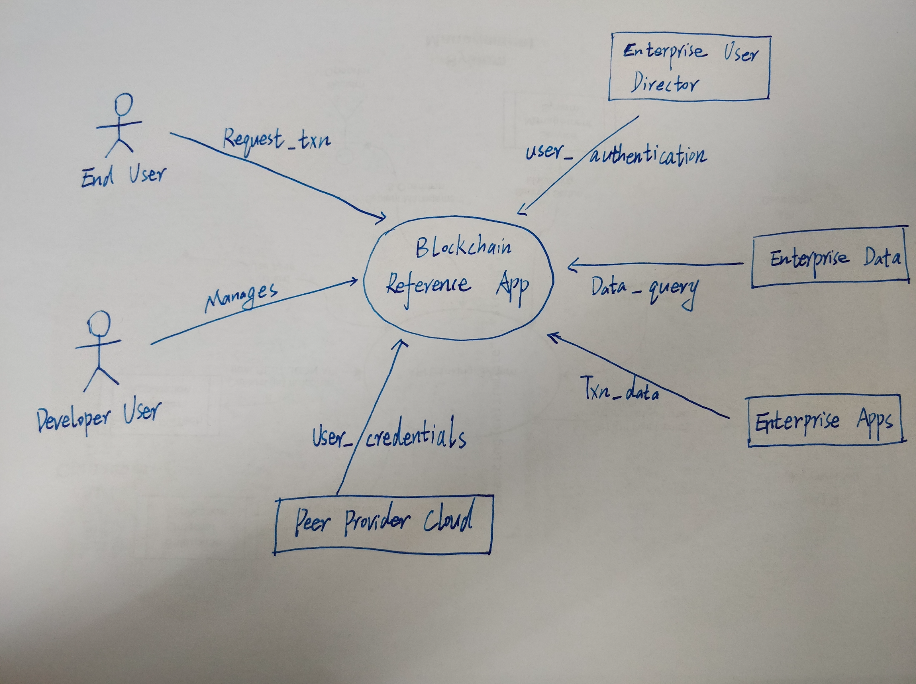 Enterprise User
Director
Request_txn
End User
user_authentication
Blockchain
Reference App
Enterprise Data
Data_query
Manages
Developer User
Txn_data
Enterprise Apps
User_credentials
Peer Provider Cloud